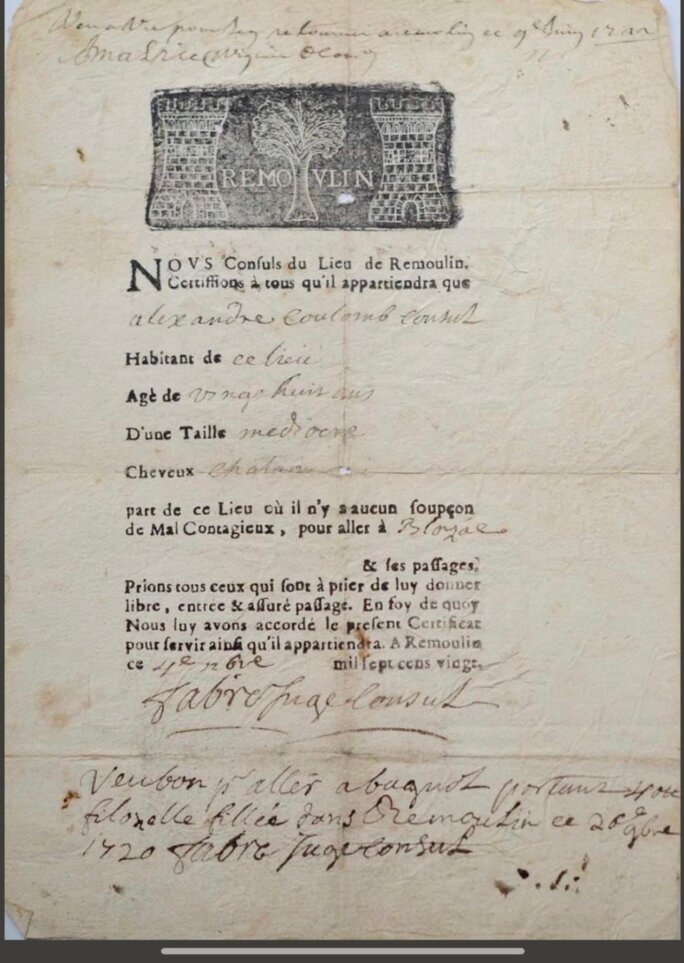 pour
retourner a remoulin ce 9e Juin
REMOVLIN
NOVS Consuls du Lieu de Remoulin.
Certiffions à tous qu'il appartiendra que
alexandre coulomb Consul
Habitant de ce lieu
Agè de vingt huit ans
D'une Taille mediocre
Cheveux chatan
part de ce Lieu où il n'y a aucun soupçon
de Mal Contagieux, pour aller à Blozac
& ses passages.
Prions tous ceux qui sont à prier de luy donner
libre, entrée & assuré passage. En foy de quoy
Nous luy avons accordé le present Certificat
pour servir ainsi qu'il appartiendra. A Remoulin
ce 4e nbre mil sept cens vingt.
fabre Juge Consul
Veu bon pr aller a bagnol portant
filozelle fillée dans Remoulin ce 26e 9bre
1720 fabre Juge Consul